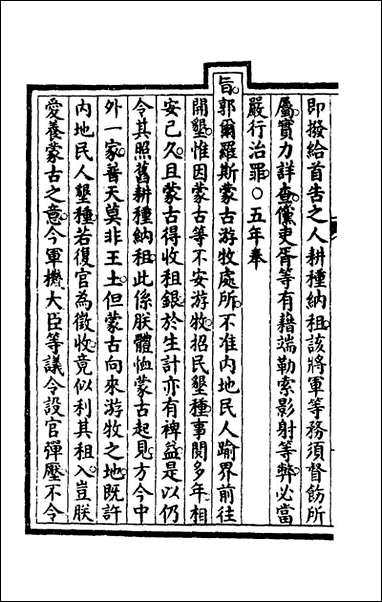 即撥給首告之人耕種納租該將軍等務須督飭所
屬實力詳查儻吏胥等有藉端勒索影射等弊必當
嚴行治罪○五年奉
旨郭爾羅斯蒙古游牧處所不准內地民人踰界前往
開墾惟因蒙古等不安游牧招民墾種事閱多年相
安已久且蒙古得收租銀於生計亦有裨益是以仍
令其照舊耕種納租此係朕體恤蒙古起見方今中
外一家普天莫非王土但蒙古向來游牧之地既許
內地民人墾種若復官為徵收竟似利其租入豈朕
愛養蒙古之意今軍機大臣等議令設官彈壓不令